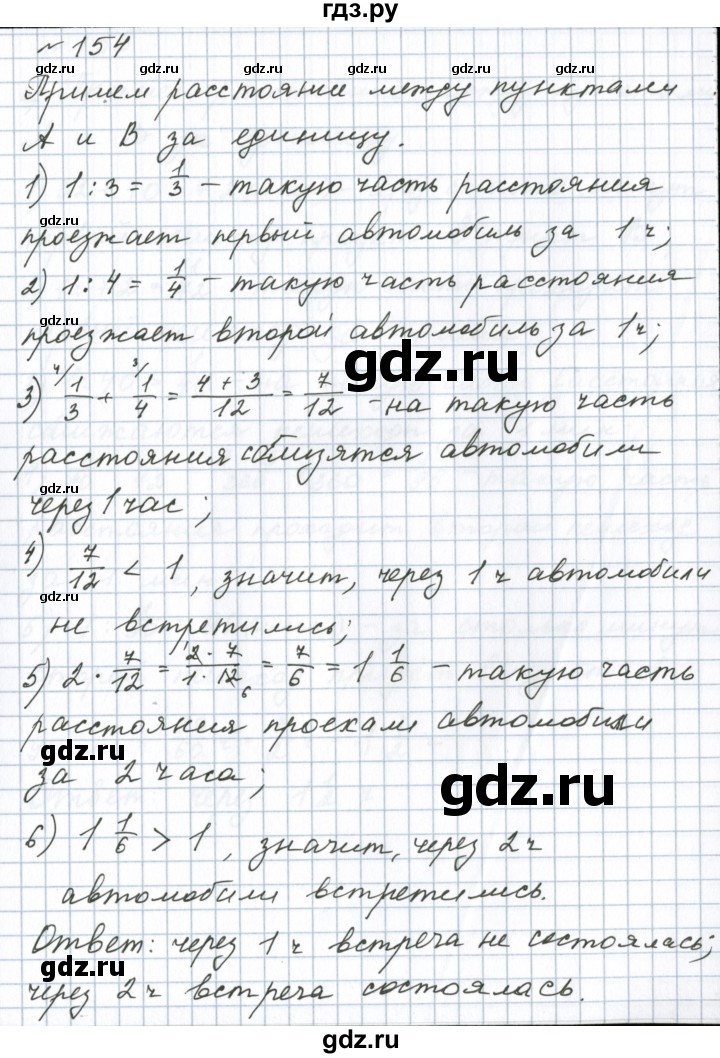 гдз.ру
№ 154
Примем расстояние между пунктами
А и В за единицу.
1) 1 : 3 = 1/3 – такую часть расстояния
проезжает первый автомобиль за 1 ч;
2) 1 : 4 = 1/4 – такую часть расстояния
проезжает второй автомобиль за 1 ч;
3) ⁴⁄1/3 + ³⁄1/4 = (4 + 3)/12 = 7/12 – на такую часть
расстояния сблизятся автомобили
через 1 час;
4) 7/12 < 1, значит, через 1 ч автомобили
не встретились;
5) 2 · 7/12 = (2 · 7)/(1 · 12) = 7/6 = 1 1/6 – такую часть
расстояния проехали автомобили
за 2 часа;
6) 1 1/6 > 1, значит, через 2 ч
автомобили встретились.
Ответ: через 1 ч встреча не состоялась;
через 2 ч встреча состоялась.
gdz.ru